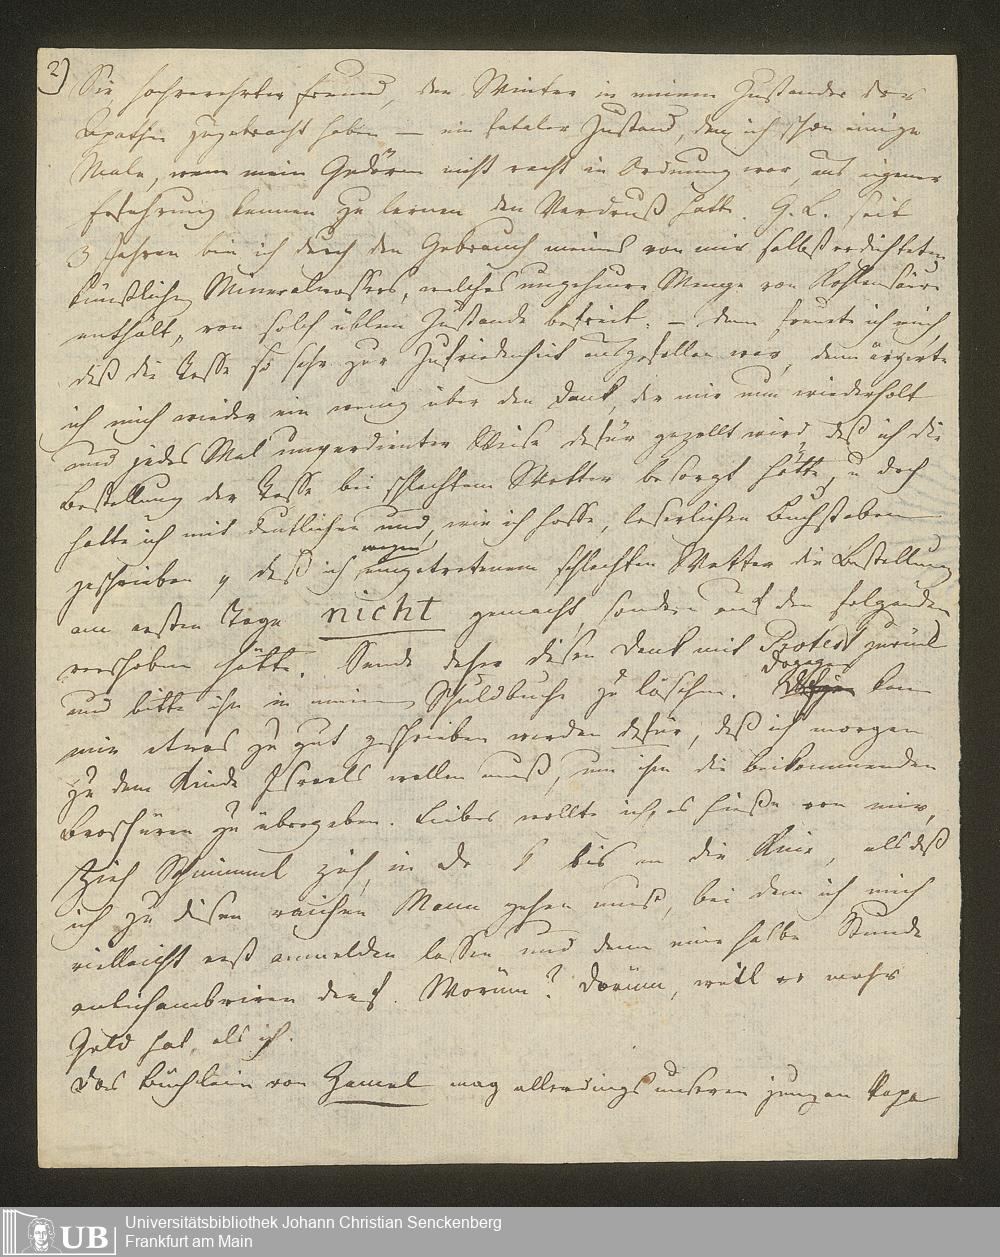 2)
Sie, hochverehrter Freund, den Winter in einem Zustande der
Apathie zugebracht haben — ein fataler Zustand, den ich schon einige
Male, wenn mein Gedärm nicht recht in Ordnung war, aus eigener
Erfahrung kennen zu lernen den Verdruß hatte. G. L. seit
3 Jahren bin ich durch den Gebrauch meines von mir selbst erdichteten
künstlichen Mineralwassers, welches ungeheure Menge von Kohlensäure
enthält, von solch üblem Zustande befreit. — Denn freute ich mich,
daß die Tasse so sehr zur Zufriedenheit ausgefallen war, dann ärgerte
ich mich wieder ein wenig über den Dank, der mir nun wiederholt
und jedes Mal unverdienter Weise dafür gezollt wird, daß ich die
Bestellung der Tasse bei schlechtem Wetter besorgt hätte, u doch
hatte ich mit deutlichen und, wie ich hoffe, leserlichen Buchstaben
geschrieben, daß ich wegen eingetretenem schlechten Wetter die Bestellung
am ersten Tage nicht gemacht, sondern auf den folgenden
verschoben hätte. Sende daher diesen Dank mit Protest zurück
und bitte ihn in meinem Schuldbuche zu löschen. Dagegen kann
mir etwas zu gut geschrieben werden dafür, daß ich morgen
zu dem Kinde Israels wallen muß, um ihm die beikommenden
Broschüren zu übergeben. Lieber wollte ich, es hieße von mir,
Zieh Schimmel zieh, in D bis an die Knie, als daß
ich zu diesem reichen Mann gehen muß, bei dem ich mich
vielleicht erst anmelden lassen und dann eine halbe Stunde
antichambriren darf. Warum? Darum, weil er mehr
Geld hat, als ich.
Das Büchlein von Hamel mag allerdings unseren jungen Papa
Universitätsbibliothek Johann Christian Senckenberg
Frankfurt am Main
UB